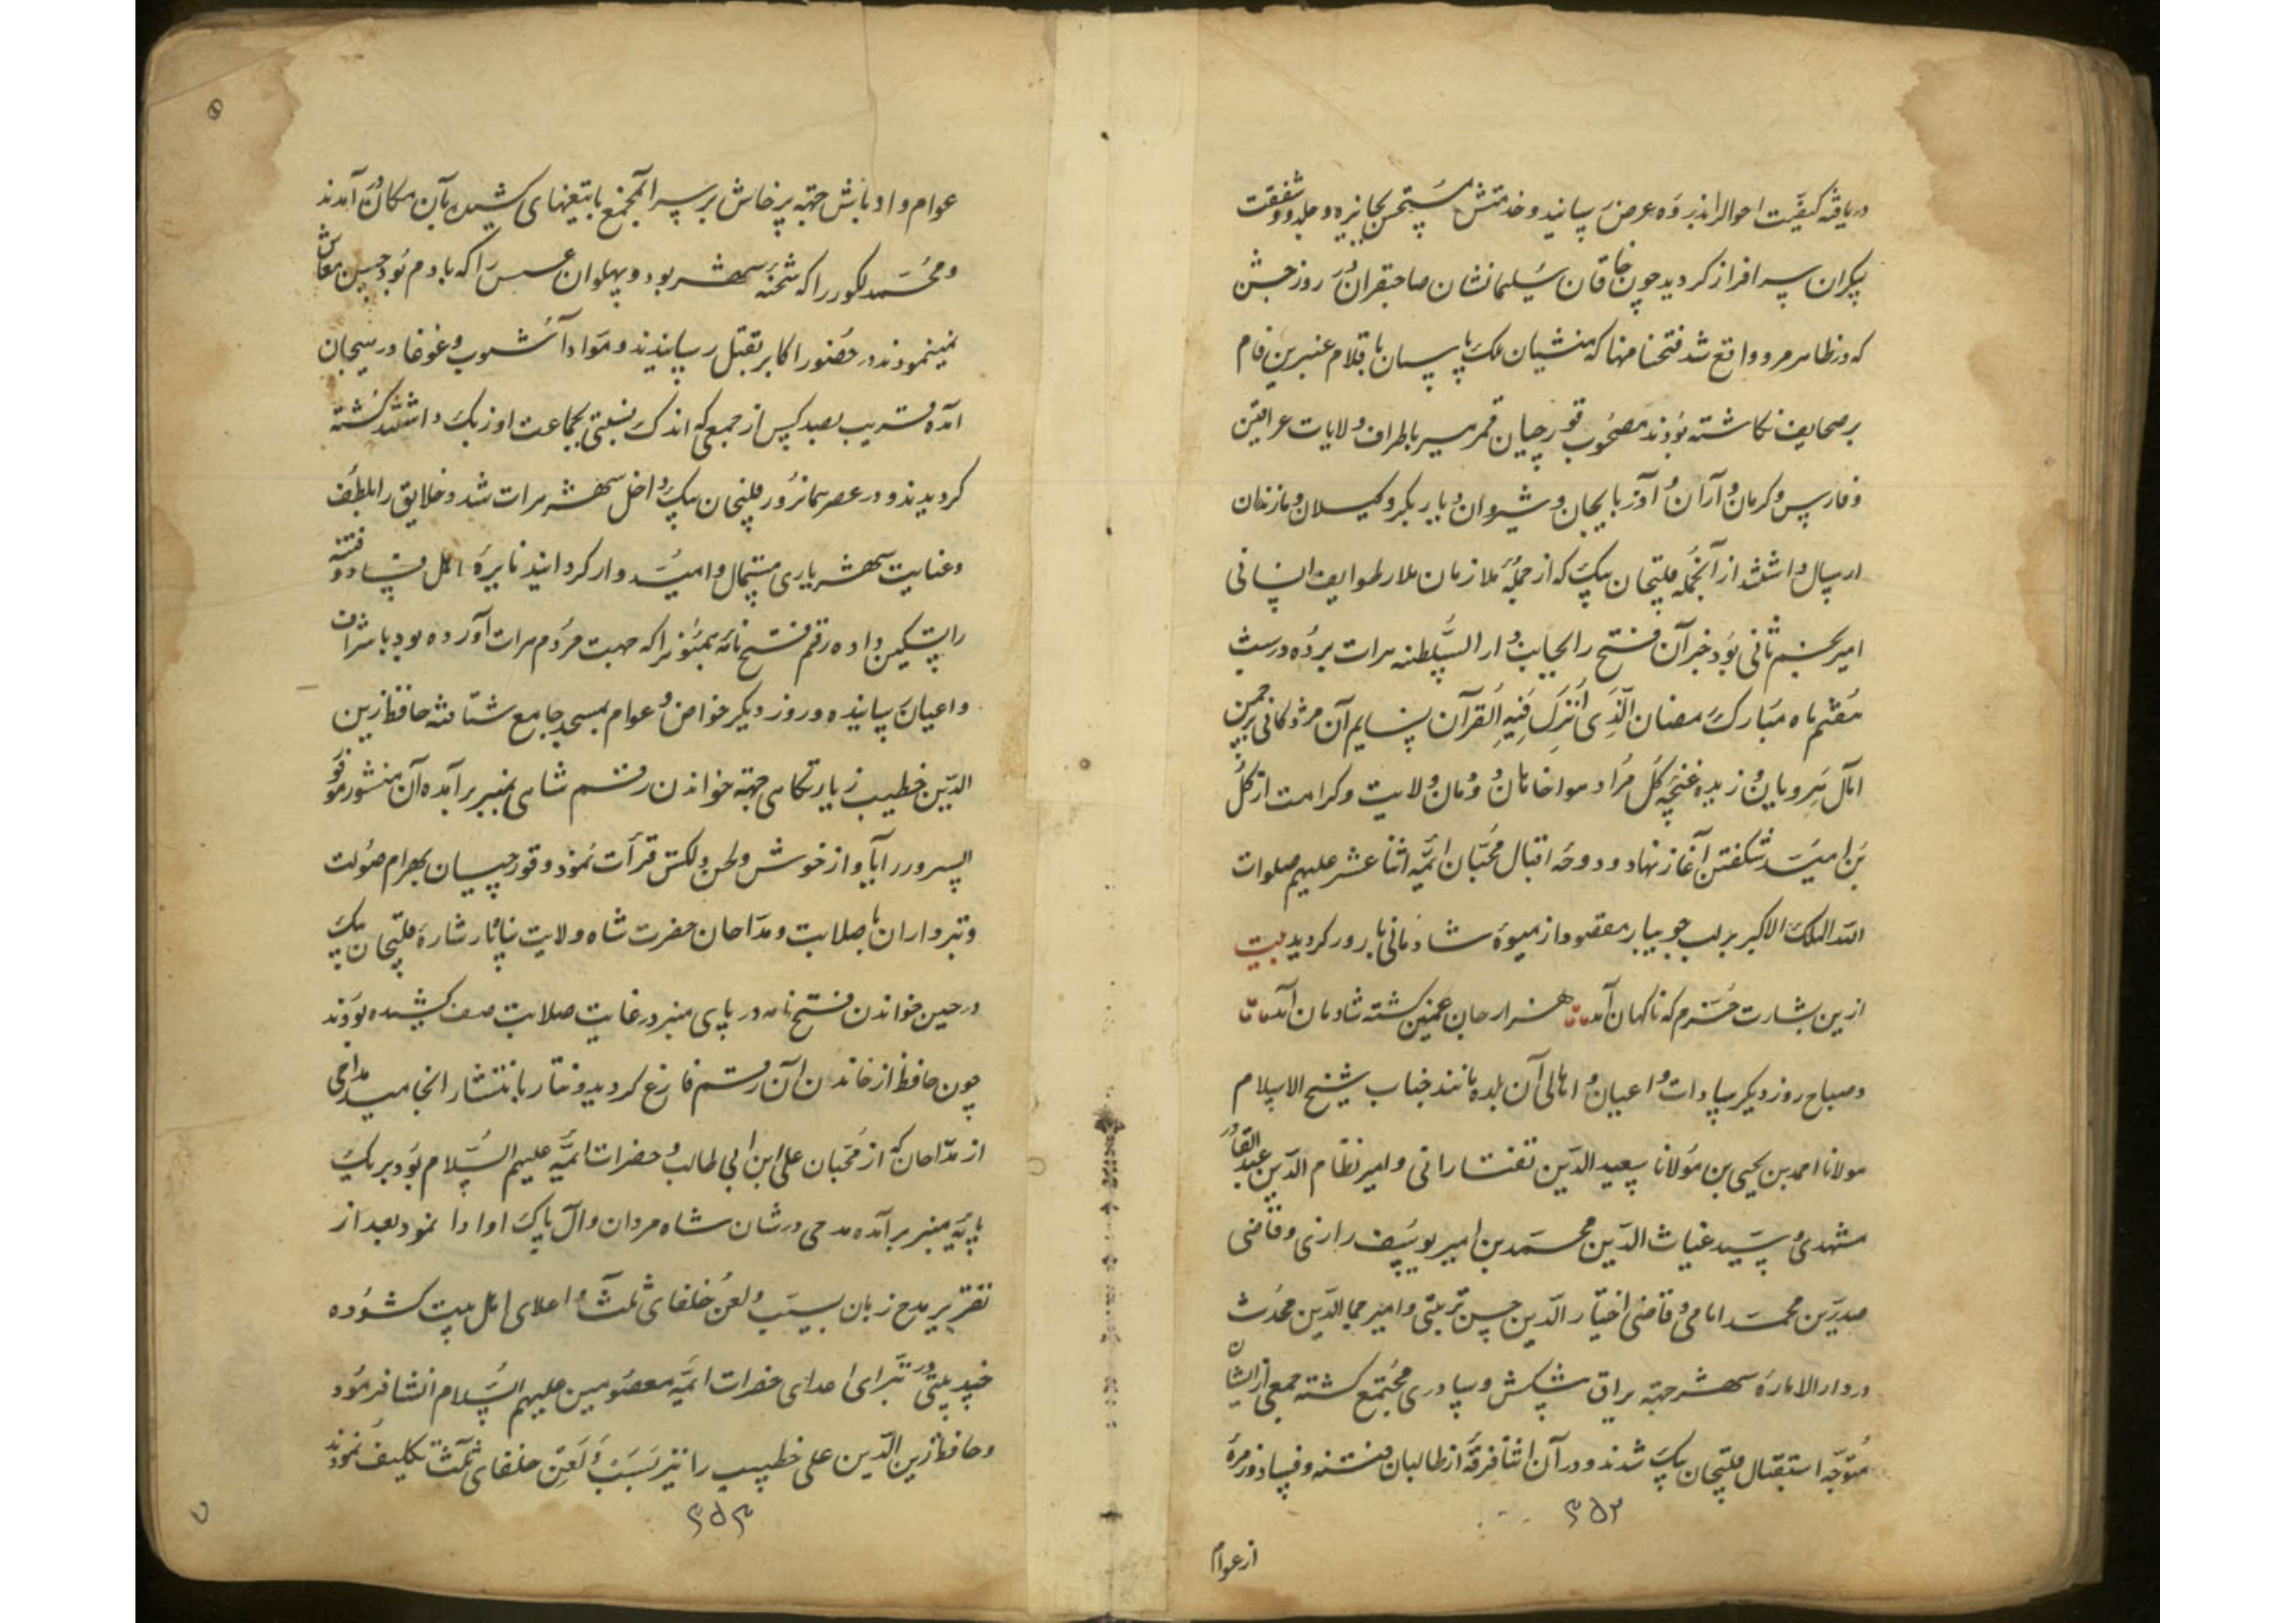 دریافته کیفیت احوال را بذروه عرض رسانید و خدمتش مستحسن بجایزه و جلدو و شفقت
بیکران سرافراز گردید چون خاقان سلیمانشان صاحبقران روز جشن
که در ظاهر مرو واقع شد فتحنامها که منشیان ملک پاسبان باقلام عنبرین فام
بر صحایف نگاشته بودند مصحوب قورچیان قمر مسیر باطراف ولایات عراقین
و فارس و کرمان و آران و آذربایجان و شیروان و دیاربکر و گیلان و مازندران
ارسال داشتند از آنجمله قلیجان بیک که از جمله ملازمان ملاذ طوایف انسانی
امیر نجم ثانی بود خبر آن فتح را بجانب دار السلطنه هرات برده در بیست
هفتم ماه مبارک رمضان الذی انزل فیه القرآن نسایم آن مژدگانی بر چمن
آمال هرویان وزیده غنچه گل مراد هواخاهان دودمان ولایت و کرامت از گل
بن امید شگفتن آغاز نهاد و دوحه اقبال محبان ائمه اثنا عشر علیهم صلوات
الله الملک الاکبر بر لب جویبار مقصود از میوه شادمانی بارور گردید بیت
ازین بشارت خرم که ناگهان آمد هزار جان غمین گشته شادمان آمد
و صباح روز دیگر سادات و اعیان و اهالی آن بلده مانند جناب شیخ الاسلام
مولانا احمد بن یحیی بن مولانا سعید الدین تفتازانی و امیر نظام الدین عبد القادر
مشهدی و سید غیاث الدین محمد بن امیر یوسف رازی و قاضی
صدرین محمد امامی و قاضی اختیار الدین حسن تربتی و امیر جما الدین محدث
در دار الاماره شهر جهة یراق پیشکش و ساوری مجتمع گشته جمعی از ایشان
متوجه استقبال قلیجان بیک شدند و در آن اثنا فرقه از طالبان فتنه و فساد و زمره
۴۵۲
از عوام
عوام و اوباش جهة پرخاش بر سر آنجمع با تیغهای کشیده بآن مکان در آمدند
و محمد لکور را که شحنه شهر بود و پهلوان عسس را که بادم بود حسین معاش
نمینمودند در حضور اکابر بقتل رسانیدند و مواد آشوب و غوغا در هیجان
آمده قریب بصد کس از جمعی که اندک نسبتی بجماعت اوزبک داشتند کشته
گردیدند و در عصر همانروز قلیجان بیک داخل شهر هرات شد و خلایق را بلطف
و عنایت شهریاری مستمال و امیدوار گردانید نایره اهل فساد و فتنه
را تسکین داده رقم فتح نامه همیونرا که جهت مردم هرات آورده بود باشراف
و اعیان رسانیده و روز دیگر خواص و عوام بمسجد جامع شتافته حافظ زین
الدین خطیب زیارتگاهی جهة خواندن رقم شاهی بمنبر برآمده آن منشور موفور
السرور را بآواز خوش و لحن دلکش قرأت نمود و قورچیان بهرام صولت
و تبرداران با صلابت و مداحان حضرت شاه ولایت پناه باشاره قلیجان بیک
در حین خواندن فتح نامه در پای منبر در غایت صلابت صف کشیده بودند
چون حافظ از خاندن آن رقم فارغ گردید و نثار بانتشار انجامید مداحی
از مداحان که از محبان علی ابن ابی طالب و حضرات ائمه علیهم السلام بود بر یک
پایه منبر برآمده مدحی در شان شاه مردان و آل پاک او ادا نمود بعد از
تقریر مدح زبان بسب و لعن خلفای ثلث و اعدای اهل بیت گشوده
چند بیتی در تبرای اعدای حضرات ائمه معصومین علیهم السلام انشا فرمود
و حافظ زین الدین علی خطیب را نیز بسب و لعن خلفای ثلث تکلیف نمودند
۴۵۳